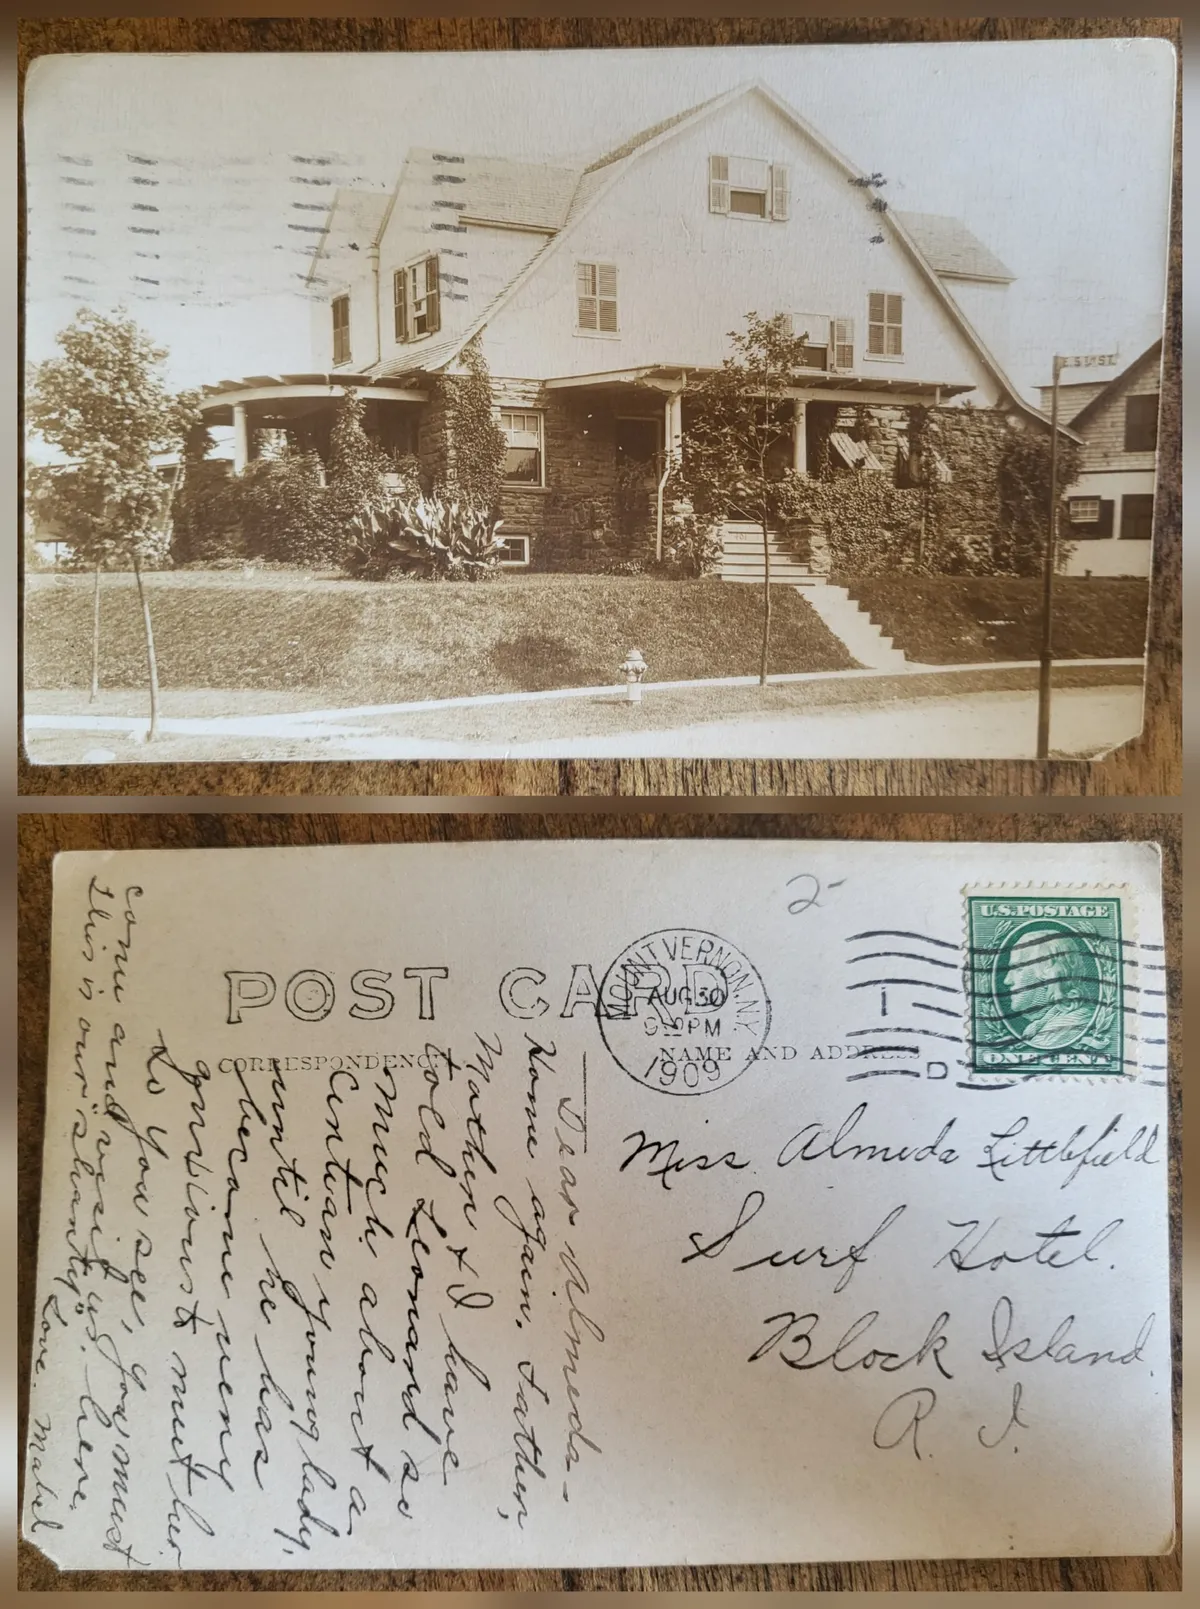 E. 5th ST.
2
POST CARD
CORRESPONDENCE
NAME AND ADDRESS
MOUNT VERNON, N.Y.
AUG 30
PM
1909
D
U.S. POSTAGE
ONE CENT
Miss. Almeda Littlefield
Surf Hotel.
Block Island.
R. I.
Dear Almeda—
Home again. Father,
Mother & I have
told Leonard so
much about a
certain young lady,
until he has
become very
anxious to meet her
So you see, you must
come and visit us. here.
This is our "shanty". Love. Mabel